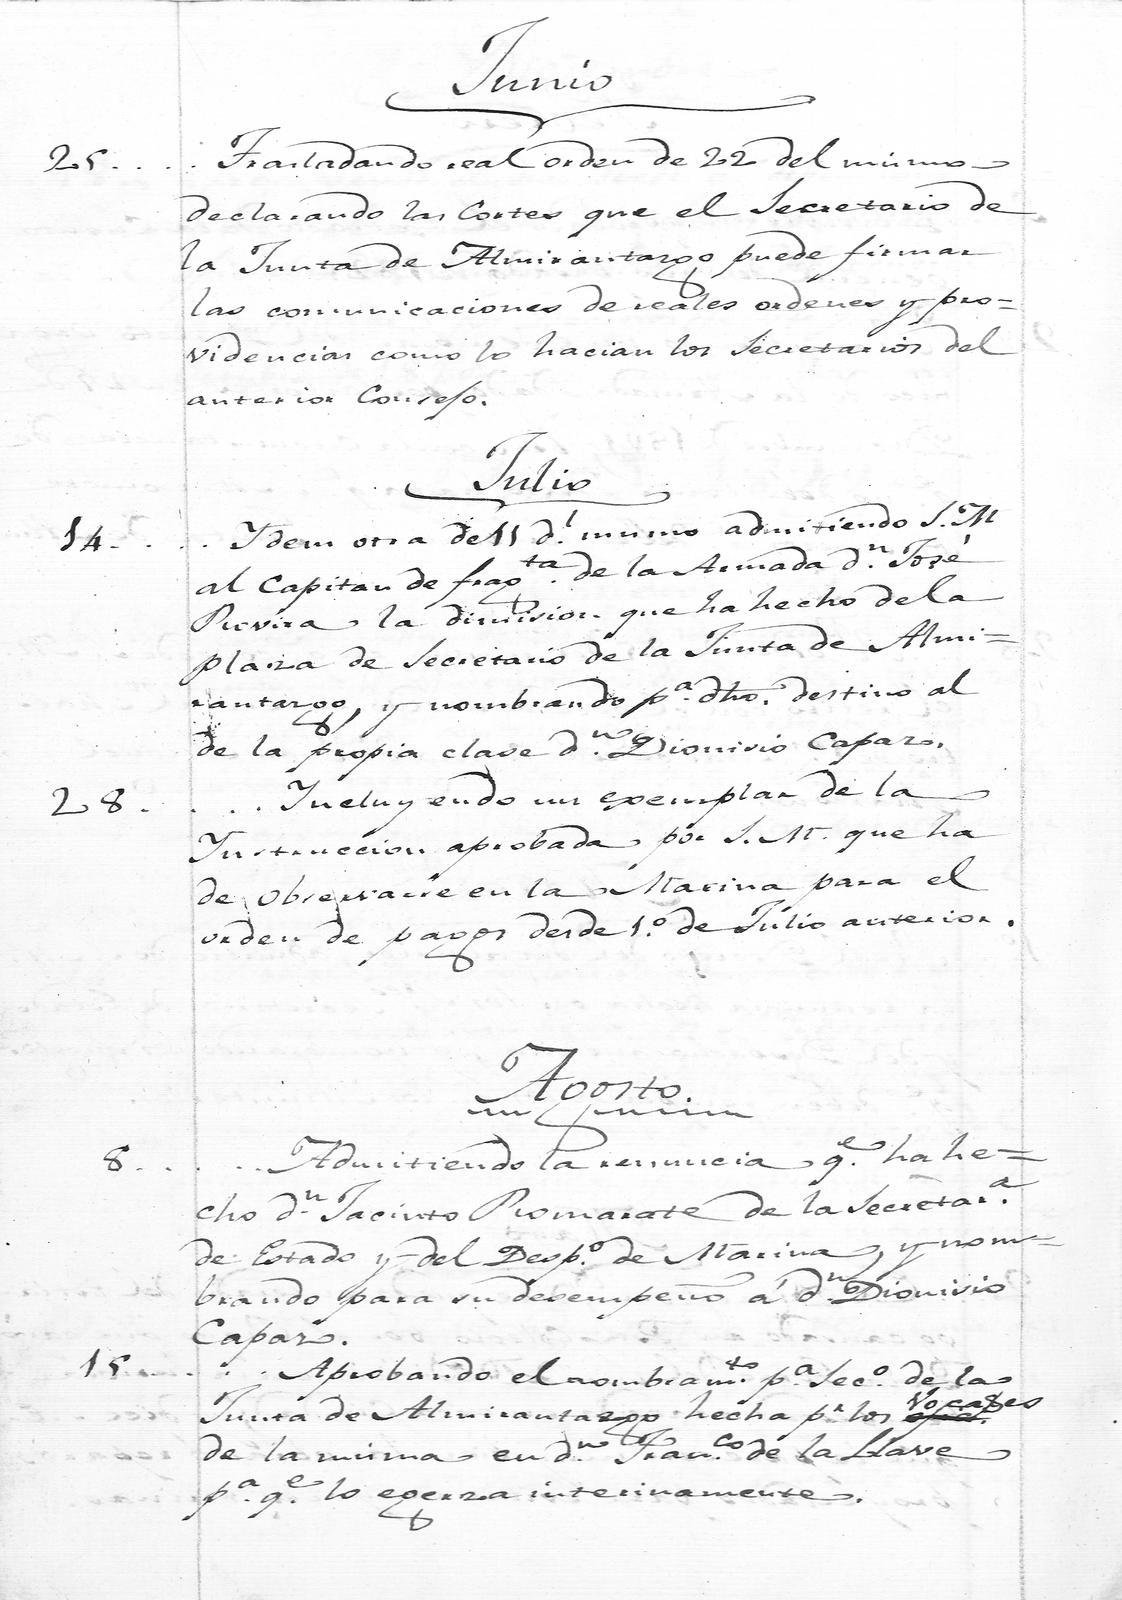 Junio
25.... Trasladando real orden de 22 del mismo
declarando las Cortes que el Secretario de
la Junta de Almirantazgo puede firmar
las comunicaciones de reales ordenes y pro=
videncias como lo hacian los Secretarios del
anterior Consejo.
Julio
14.... Ydem otra de 11 d.l mismo admitiendo S.M
al Capitan de frag.ta de la Armada d.n José
Rovira la dimision que ha hecho de la
plaza de Secretario de la Junta de Almi=
rantazgo, y nombrando p.a dho. destino al
de la propia clase d.n Dionisio Capaz.
28.... Incluyendo un exemplar de la
Ynstruccion aprobada por S.M. que ha
de observarse en la Marina para el
orden de pagos desde 1.o de Julio anterior.
Agosto.
8.... Admitiendo la renuncia q.e ha he=
cho d.n Jacinto Romarate de la Secretar.a
de Estado y del Desp.o de Marina, y nom=
brando para su desempeño á d.n Dionisio
Capaz.
15.... Aprobando el nombram.to p.a Sec.o de la
Junta de Almirantazgo hecha p.r los Vocales
de la misma en d.n Fran.co de la Llave
p.a q.e lo egerza interinamente.